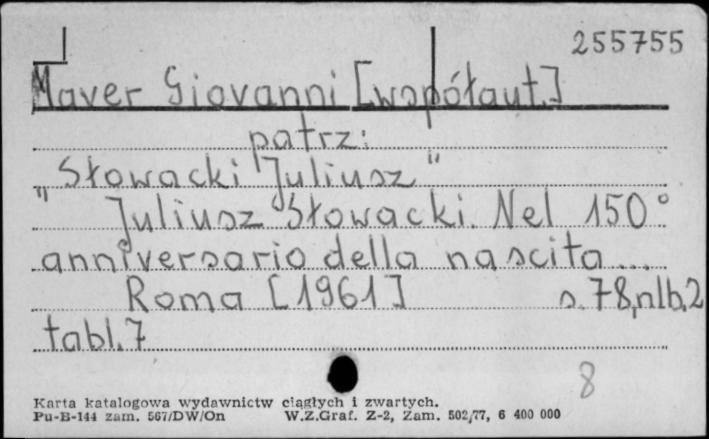 255755
Maver Giovanni [współaut.]
patrz:
"Słowacki Juliusz"
Juliusz Słowacki. Nel 150°
anniversario della nascita...
Roma [1961] s. 78, nlb. 2
tabl. 7
8
Karta katalogowa wydawnictw ciągłych i zwartych.
Pu-B-144 zam. 567/DW/On W.Z.Graf. Z-2, Zam. 502/77, 6 400 000